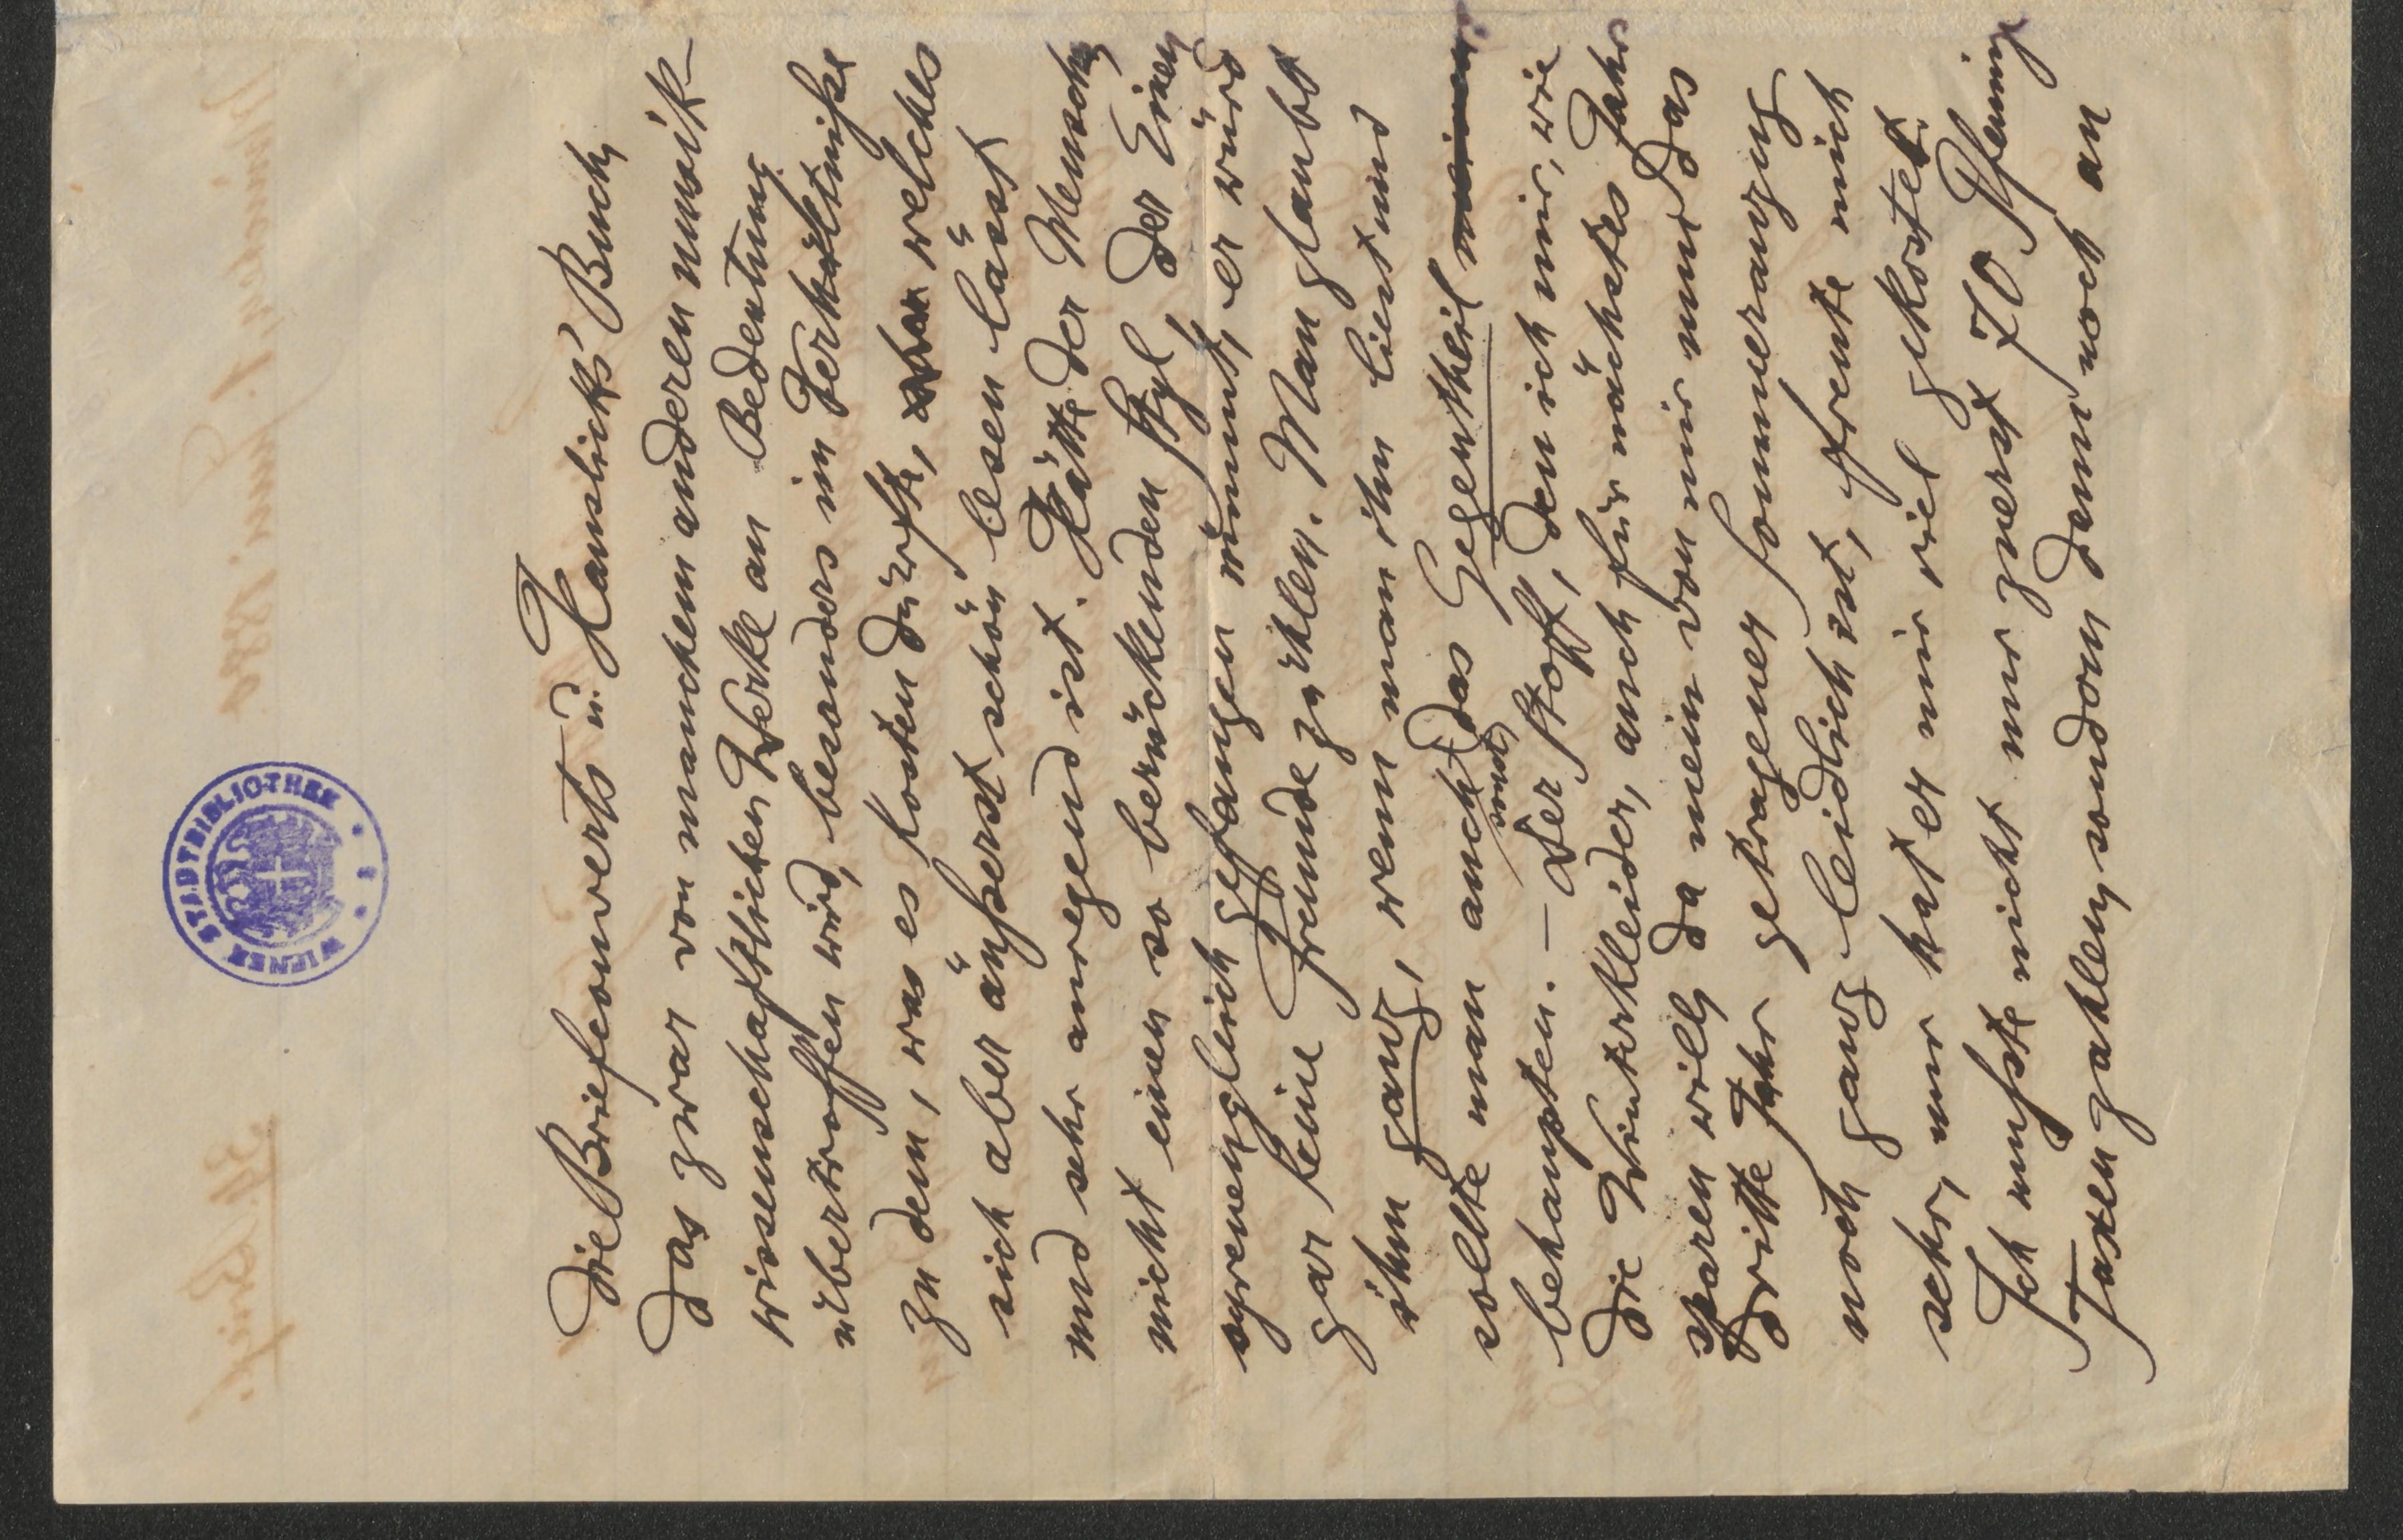 Die Briefcouverts u. Hanslick's Buch,
das zwar von manchem anderen musik-
wissenschaftlichen Werke an Bedeutung
übertroffen wird, besonders im Verhältnisse
zu dem, was es kosten dürfte, welches
sich aber äußerst schön lesen lässt
und sehr anregend ist. Hätte der Mensch
nicht einen so berückenden Styl, der Einen
syrenengleich gefangen nimmt, er würd
gar keine Freunde zählen. Man glaubt
ihm ganz, wenn man ihn liest und
sollte man auch das Gegentheil meinen
sonst
behaupten. – Der Stoff, den ich mir, wie
die Winterkleider, auch für nächstes Jahr
sparen will, da mein von mir nun das
dritte Jahr getragener Sommeranzug
noch ganz leidlich ist, freute mich
sehr, nur hat er mir viel gekostet.
Ich mußte nicht nur zuerst 70 Pfennig
Taxen zahlen, sondern dann noch an
WIENER STADTBIBLIOTHEK